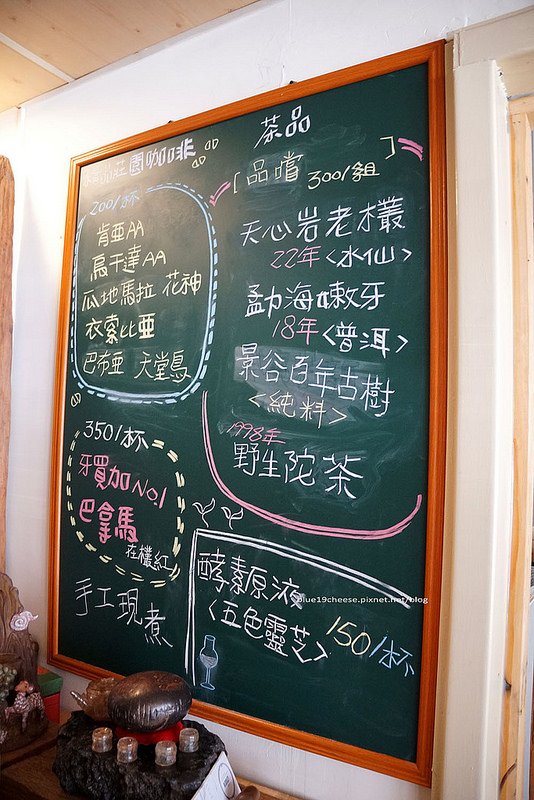 精品莊園咖啡
200/杯
肯亞AA
烏干達AA
瓜地馬拉 花神
衣索比亞
巴布亞 天堂鳥
350/杯
牙買加No1
巴拿馬
在欉紅
手工現煮
茶品
[品嚐 300/組]
天心岩老欉
22年<水仙>
勐海嫩牙
18年<普洱>
景谷百年古樹
<純料>
1998年
野生陀茶
酵素原液
<五色靈芝>
150/杯
blue19cheese.pixnet.net/blog